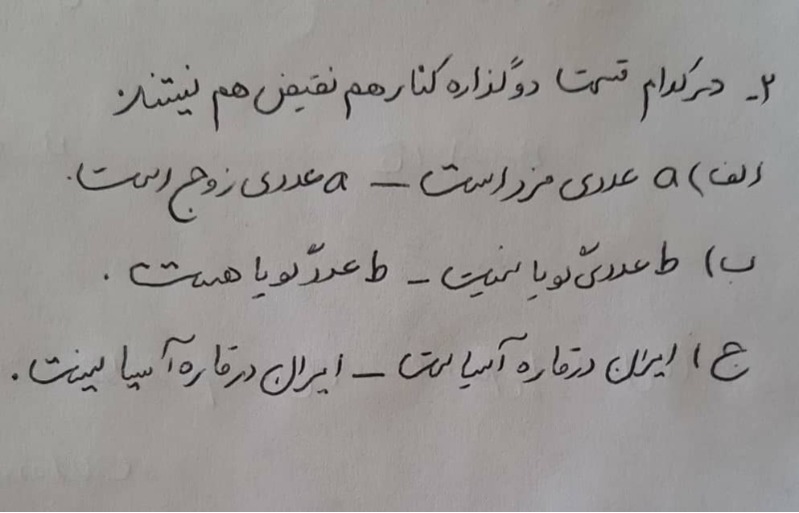 ۲_ در کدام قسمت دو گزاره کنار هم نقیض هم نیستند:
الف) a عددی فرد است _ a عددی زوج است.
ب) b عددی گویا نیست _ b عدد گویا هست .
ج) ایران در قاره آسیاست _ ایران در قاره آسیا نیست .